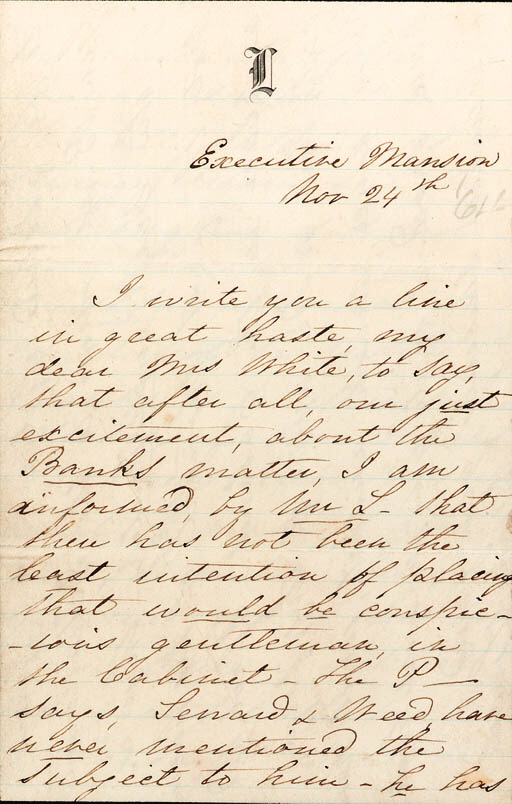 L
Executive Mansion
Nov 24th
I write you a line
in great haste, my
dear Mrs White, to say,
that after all, our just
excitement, about the
Banks matter, I am
informed, by Mr L- that
there has not been the
least intention of placing
that would be conspic-
-uous gentleman, in
the Cabinet - The P—
says, Seward & Weed, have
never mentioned the
subject to him - he has